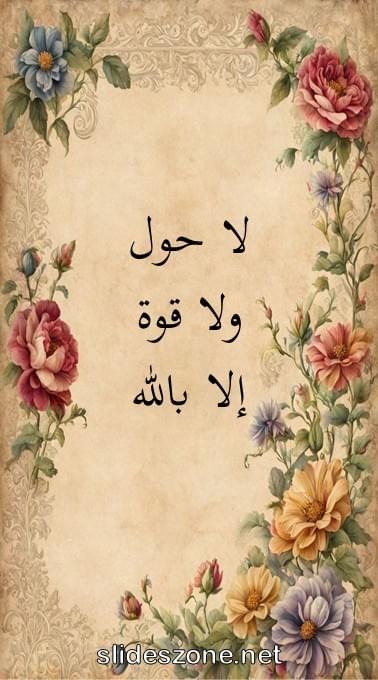 لا حول
ولا قوة
إلا بالله
slideszone.net